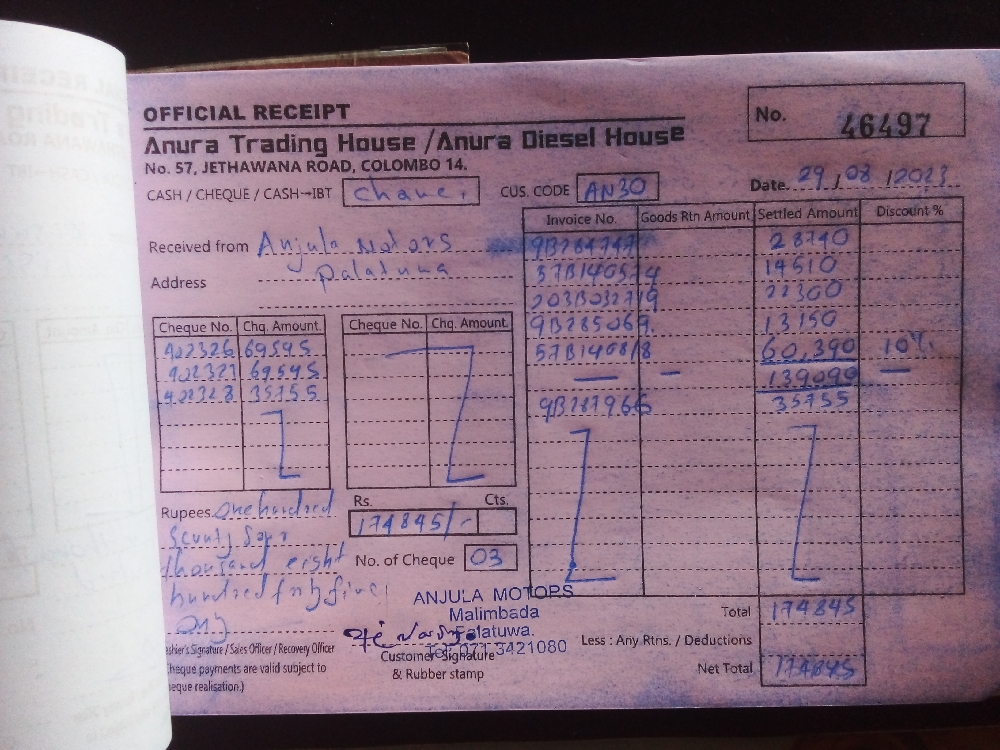 OFFICIAL RECEIPT
No. 46497
Anura Trading House /Anura Diesel House
No. 57, JETHAWANA ROAD, COLOMBO 14.
CASH / CHEQUE / CASH→IBT CUS. CODE AN30 Date. 29/08/2023
Received from Anjula Motors
Address Palatuwa
Invoice No. Goods Rtn Amount Settled Amount Discount %
9B284747 28740
57B140574 14510
203B032719 22300
9B285069. 13150
57B140818 60,390 10%
— — 139090 —
9B287966 35755
Cheque No. Chq. Amount. Cheque No. Chq. Amount.
422326 69545
422327 69545
422328 35755
Rupees. One hundred
Seventy four
thousand eight
hundred forty five
only
Rs. Cts.
174845/-
No. of Cheque 03
ANJULA MOTORS
Malimbada
Palatuwa.
Tel: 071 3421080
Customer Signature
& Rubber stamp
Total 174845
Less : Any Rtns. / Deductions
Net Total 174845
ashier's Signature / Sales Officer / Recovery Officer
heque payments are valid subject to
eque realisation.)